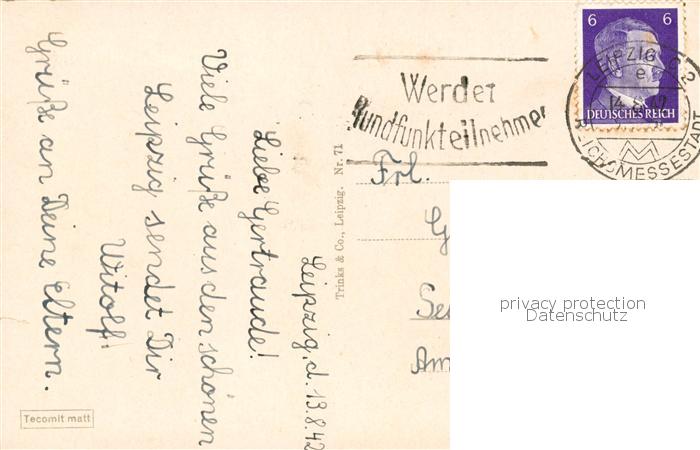 Leipzig, d. 13.8.42
Liebe Gertraude!
Viele Grüße aus den schönen
Leipzig sendet Dir
Witolf!
Grüße an Deine Eltern.
Tecomit matt
Trinks & Co., Leipzig. Nr. 71
Werdet
Rundfunkteilnehmer
6 6
DEUTSCHES REICH
LEIPZIG C2
e
14.8.42
REICHSMESSESTADT
Frl.
G
Se
Am
privacy protection
Datenschutz